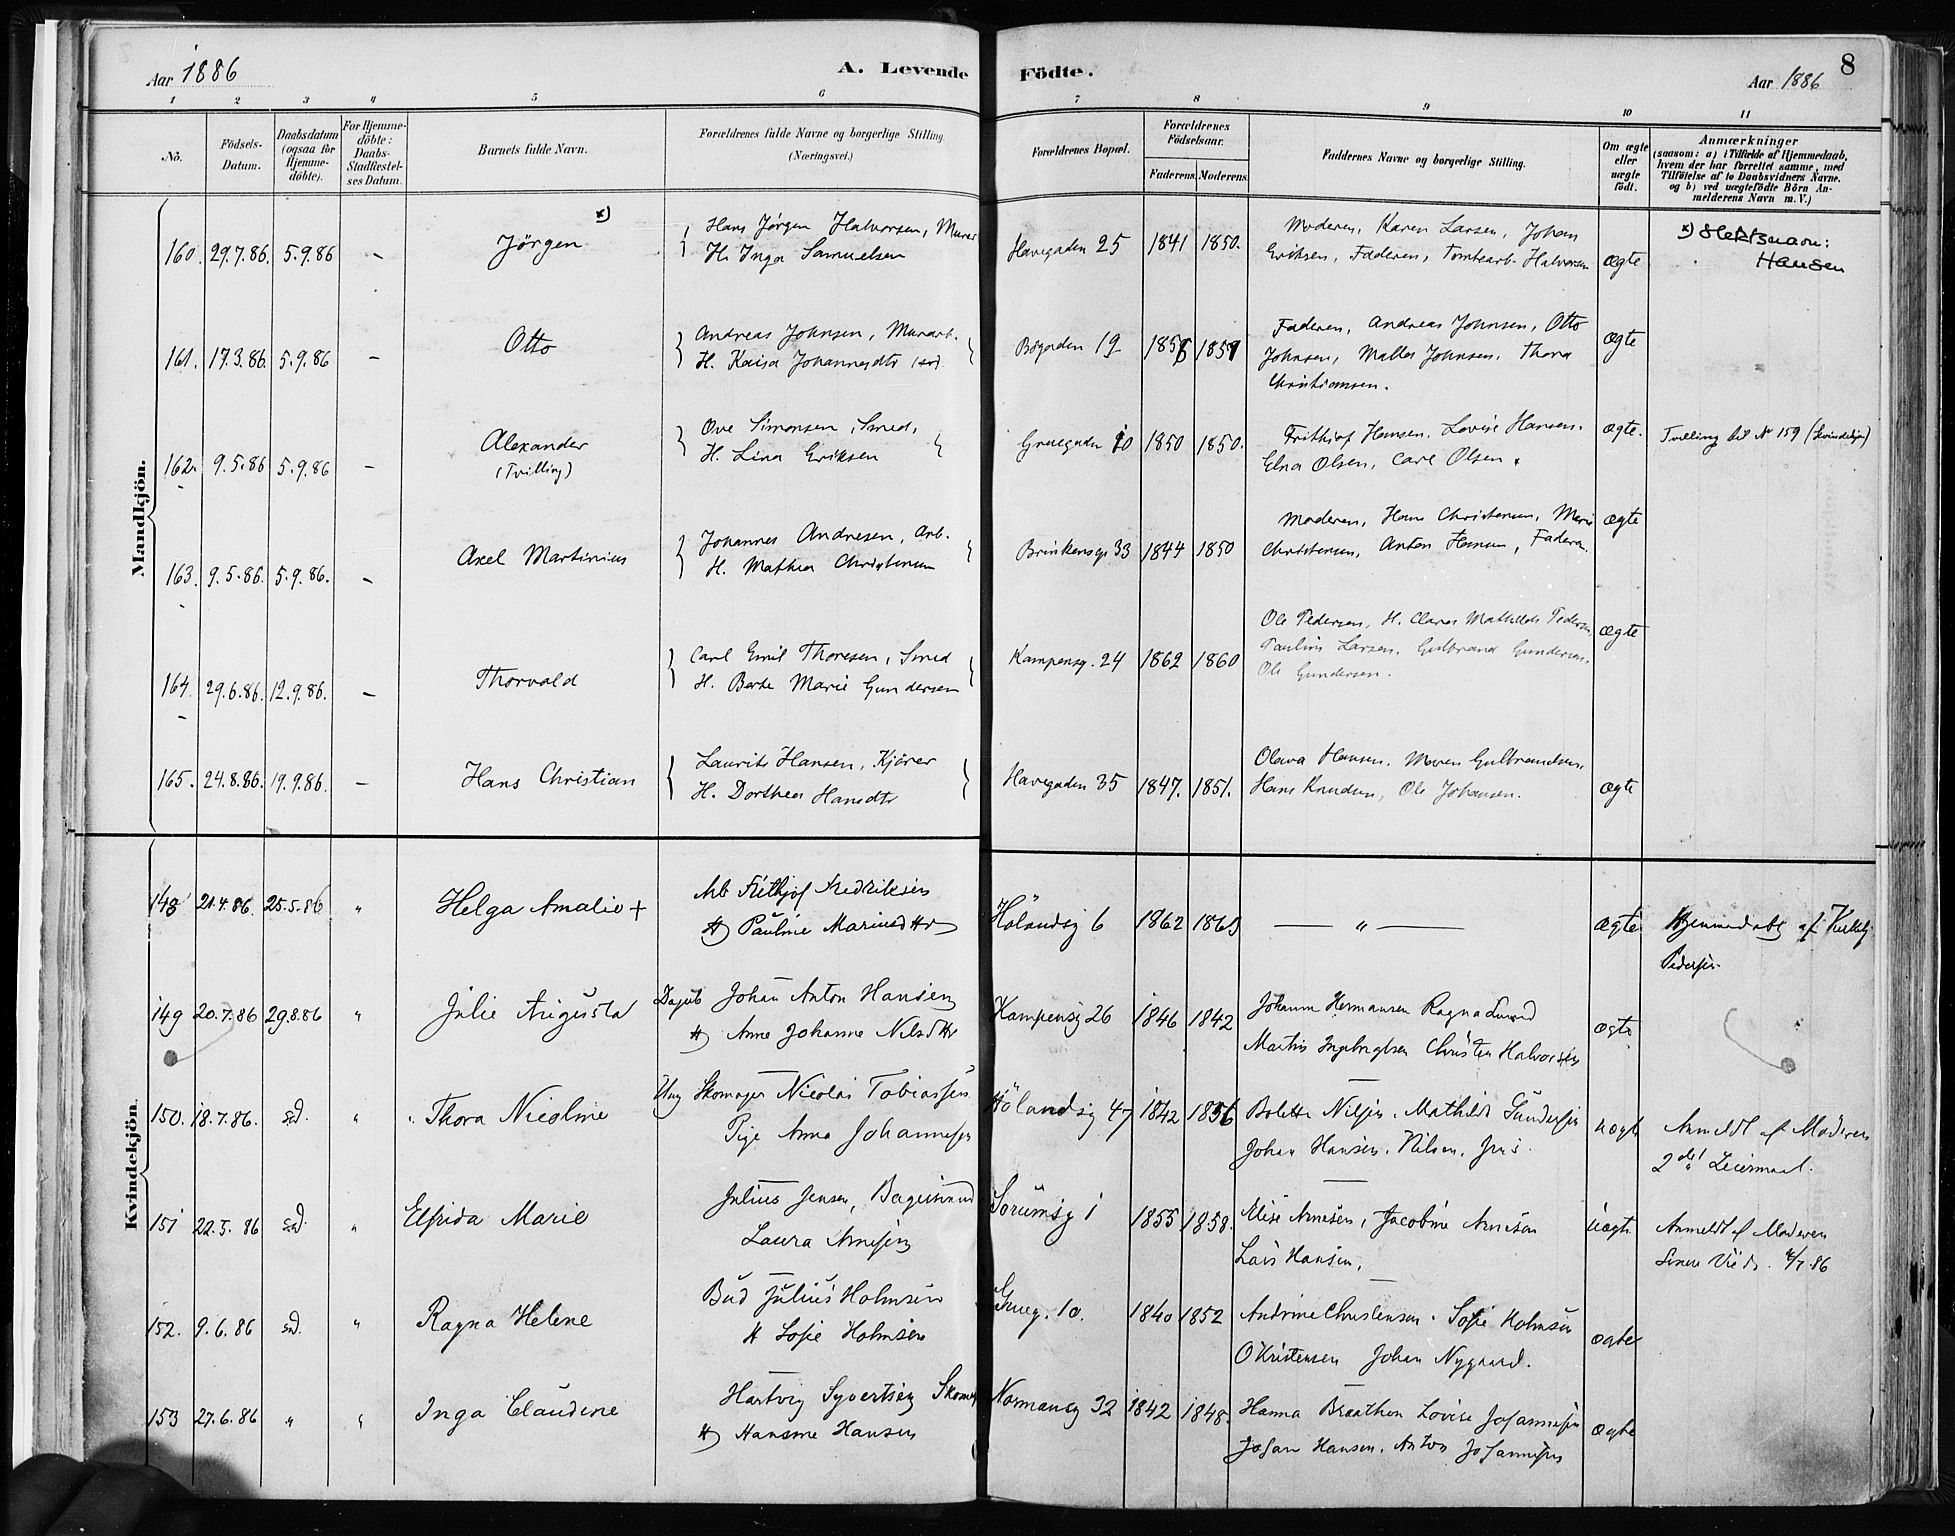 Aar 1886
A. Levende Födte.
Aar 1886
8
1 2 3 4 5 6 7 8 9 10 11
No.
Födsels-
Datum.
Daabsdatum
(ogsaa for
Hjemme-
döbte).
For Hjemme-
döbte:
Daabs-
Stadfæstel-
ses Datum.
Barnets fulde Navn.
Forældrenes fulde Navne og borgerlige Stilling.
(Næringsvei.)
Forældrenes Bopæl.
Forældrenes
Födselsaar.
Faderens. Moderens.
Faddernes Navne og borgerlige Stilling.
Om ægte
eller
uægte
født.
Anmærkninger
(saasom: a) i Tilfælde af Hjemmedaab,
hvem der har forrettet samme, med
Tilföielse af to Daabsvidners Navne.
og b) ved uægtefödte Börn An-
melderens Navn m. V.)
Mandkjön.
160. 29.7.86. 5.9.86 – Jörgen x)
Hans Jørgen Halvorsen, Murer
H. Inga Samuelsen
Havegaden 25 1841 1850.
Moderen, Karen Larsen, Johan
Eriksen, Faderen, Tomtearb. Halvorsen
ægte
x) Slektsnavn:
Hansen
161. 17.3.86. 5.9.86 – Otto
Andreas Johnsen, Murarb.
H. Kaisa Johannesdtr (sv)
Bögaden 19
Faderen, Andreas Johnsen, Otto
Johnsen, Mallo Johnsen, Thora
Christiansen.
ægte
162. 9.5.86 5.9.86 – Alexander
(Tvilling)
Ove Simonsen, Smed,
H. Lina Eriksen
Gruegaden 10 1850 1850.
Frithjof Hansen, Lovise Hansen.
Elna Olsen, Carl Olsen.
ægte.
Tvilling til № 159 (kvindekjön)
163. 9.5.86. 5.9.86. – Axel Martinius
Johannes Andresen, Arb.
H. Mathea Christensen
Brinkensg. 33 1844 1850
Moderen, Hans Christensen, Marie
Christensen, Anton Hansen, Faderen.
ægte
164. 29.6.86. 12.9.86. – Thorvald
Carl Emil Thoresen, Smed
H. Berte Marie Gundersen
Kampensg. 24 1862 1860
Ole Pedersen, H. Clara Mathilde Pedersen,
Pauline Larsen, Gulbrand Gundersen,
Ole Gundersen.
ægte
165. 24.8.86. 19.9.86. – Hans Christian
Laurits Hansen, Kjörer
H. Dorthea Hansdtr
Havegaden 35 1847. 1851.
Olava Hansen, Maren Gulbrandsen
Hans Knudsen, Ole Johansen.
ægte
Kvindekjön.
148 21.4.86. 25.5.86 " Helga Amalie +
Arb Frithjof Fredriksen
H) Pauline Mariusdttr
Hölandsg 6 1862 1863
— " —
ægte
Hjemmedøbt af Kirketj
Pedersen
149 20.7.86 29.8.86 " Julie Augusta
Dagarb Johan Anton Hansen
H) Anne Johanne Nilsdttr
Kampensg 26 1846 1842
Johanne Hermansen Ragna Lund
Martin Ingebrigtsen Christen Halvorsen
ægte
150. 18.7.86. sd. " Thora Nicoline
Ung Skomager Nicolai Tobiassen
Pige Anna Johannesen
Hölandsg 47 1842 1856
Bolette Nilsen. Mathilde Gundersen
Johan Hansen. Nilsen. Jens.
uægte
Anmeldt af Moderen
2det Leiermaal.
151 22.5.86 sd. " Elfrida Marie
Julius Jensen, Bagersvend
Laura Arnesen
Sörumsg 1 1855 1858.
Elise Arnesen, Jacobine Arnesen
Lars Hansen,
uægte
Anmeldt af Moderen
152. 9.6.86 sd. " Ragna Helene
Bud Julius Holmsen
H Sofie Holmsen
Grueg. 10. 1840 1852
Andrine Christensen. Sofie Holmsen
O Kristensen Johan Nygaard.
ægte
153 27.6.86 " " Inga Claudine
Hartvig Syvertsen Skomag
H) Hansine Hansen
Normansg 32 1842 1848.
Hanna Braathen Lovise Johannesen
Johan Hansen. Anton Johannesen
ægte